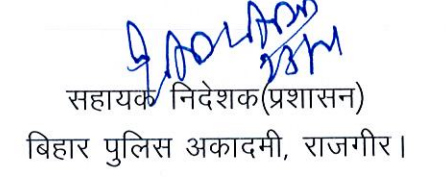 सहायक निदेशक(प्रशासन)
बिहार पुलिस अकादमी, राजगीर।